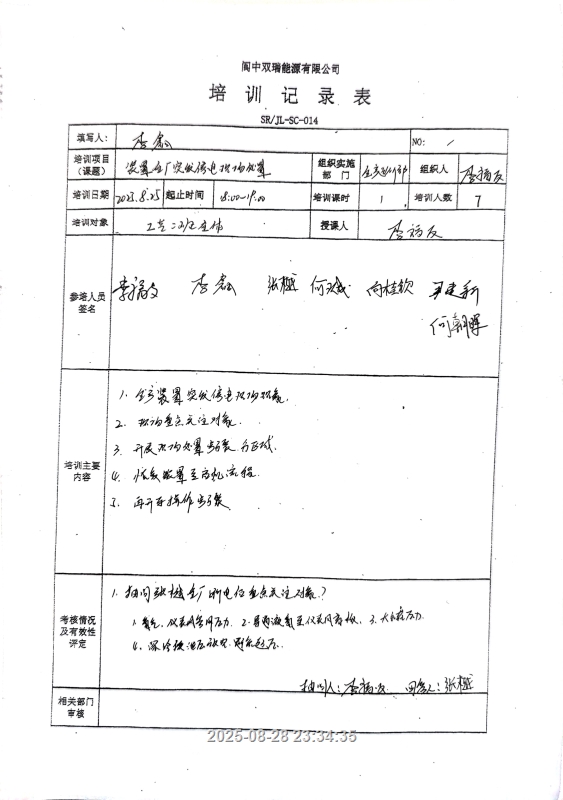 阆中双瑞能源有限公司
培训记录表
SR/JL-SC-014
填写人： 李磊 NO： /
培训项目（课题） 装置全厂突发停电现场处置 组织实施部门 生产运行部 组织人 李福友
培训日期 2025.8.25 起止时间 18:00-19:00 培训课时 1 培训人数 7
培训对象 工艺二班全体 授课人 李福友
参培人员签名 李福友 李磊 张樾 何斌 向桂钦 建新
何朝晖
培训主要内容
1. 生产装置突发停电现场现象.
2. 现场重点关注对象.
3. 开展现场处置步骤 分区域
4. 恢复装置至启机流程.
5. 再开车操作步骤
考核情况及有效性评定
1. 抽问张樾全厂断电后重点关注对象?
1. 仪表风管网压力. 2. 液氮至仪表风 3. 压力.
4. 深冷
抽问人：李福友 回答人：张樾
相关部门审核
2025-08-28 23:34:35